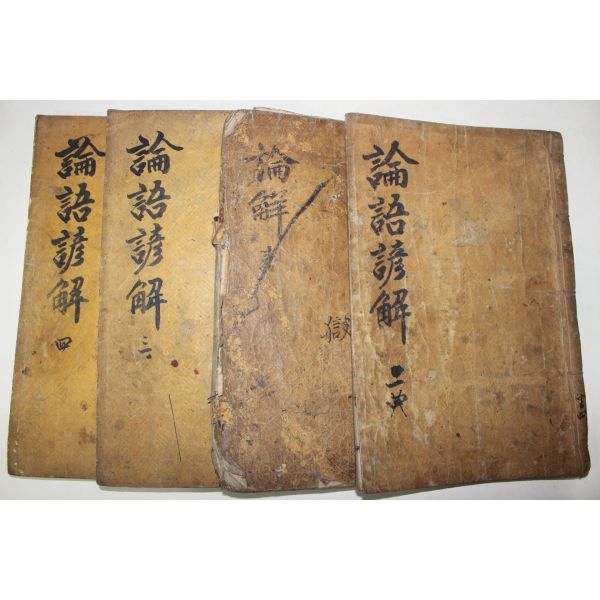 論語諺解
四
論語諺解
三
論解
論語諺解
二